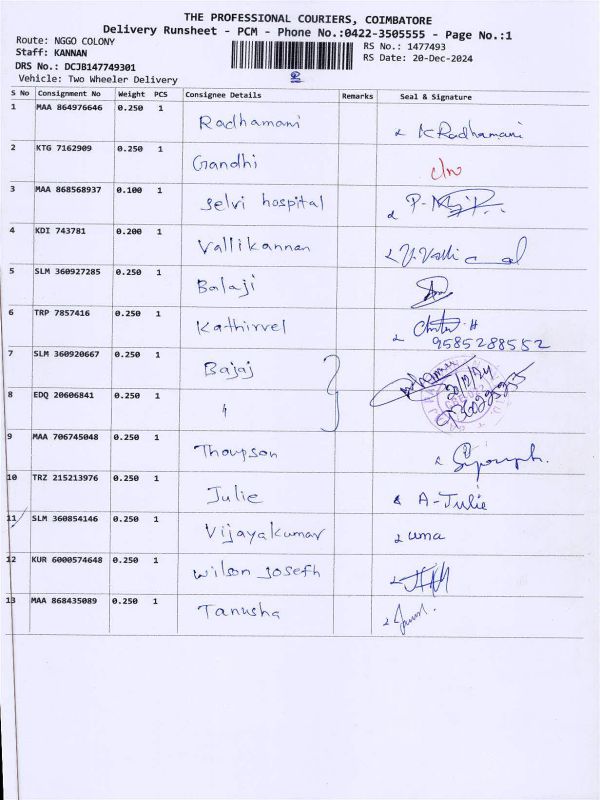 THE PROFESSIONAL COURIERS, COIMBATORE
Delivery Runsheet - PCM - Phone No.:0422-3505555 - Page No.:1
Route: NGGO COLONY RS No.: 1477493
Staff: KANNAN RS Date: 20-Dec-2024
DRS No.: DCJB147749301
Vehicle: Two Wheeler Delivery
S No Consignment No Weight PCS Consignee Details Remarks Seal & Signature
1 MAA 864976646 0.250 1 Radhamani K Radhamani
2 KTG 7162909 0.250 1 Gandhi
3 MAA 868568937 0.100 1 Selvi hospital
4 KDI 743781 0.200 1 Vallikannan
5 SLM 360927285 0.250 1 Balaji
6 TRP 7857416 0.250 1 Kathirvel
9585288552
7 SLM 360920667 0.250 1 Bajaj 20/12/24
8 EDQ 20606841 0.250 1 "
9 MAA 706745048 0.250 1 Thoupson
10 TRZ 215213976 0.250 1 Julie A-Julie
11 SLM 360854146 0.250 1 Vijayakumar uma
12 KUR 6000574648 0.250 1 Wilson Josefh
13 MAA 868435089 0.250 1 Tanusha